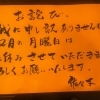 お詫び。
誠に申し訳ありませんが
2月の月曜日は
お休みさせていただきます
宜しくお願いいたします。
佐々木